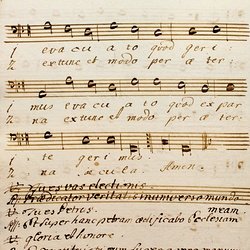 1 eva cu a to quod ge ri:
2 ex tunc et modo per æ ter
1 mus eva cu a to quod ex par
2 na ex tunc et modo per æ ter:
1 te ge ri mus.
2 na sæ cula. Amen.
Tu es vas electionis.
Prædicator veritatis in universo mundo
Tu es Petrus.
Et super hanc petram ædificabo Ecclesiam meam
gloria et honore.